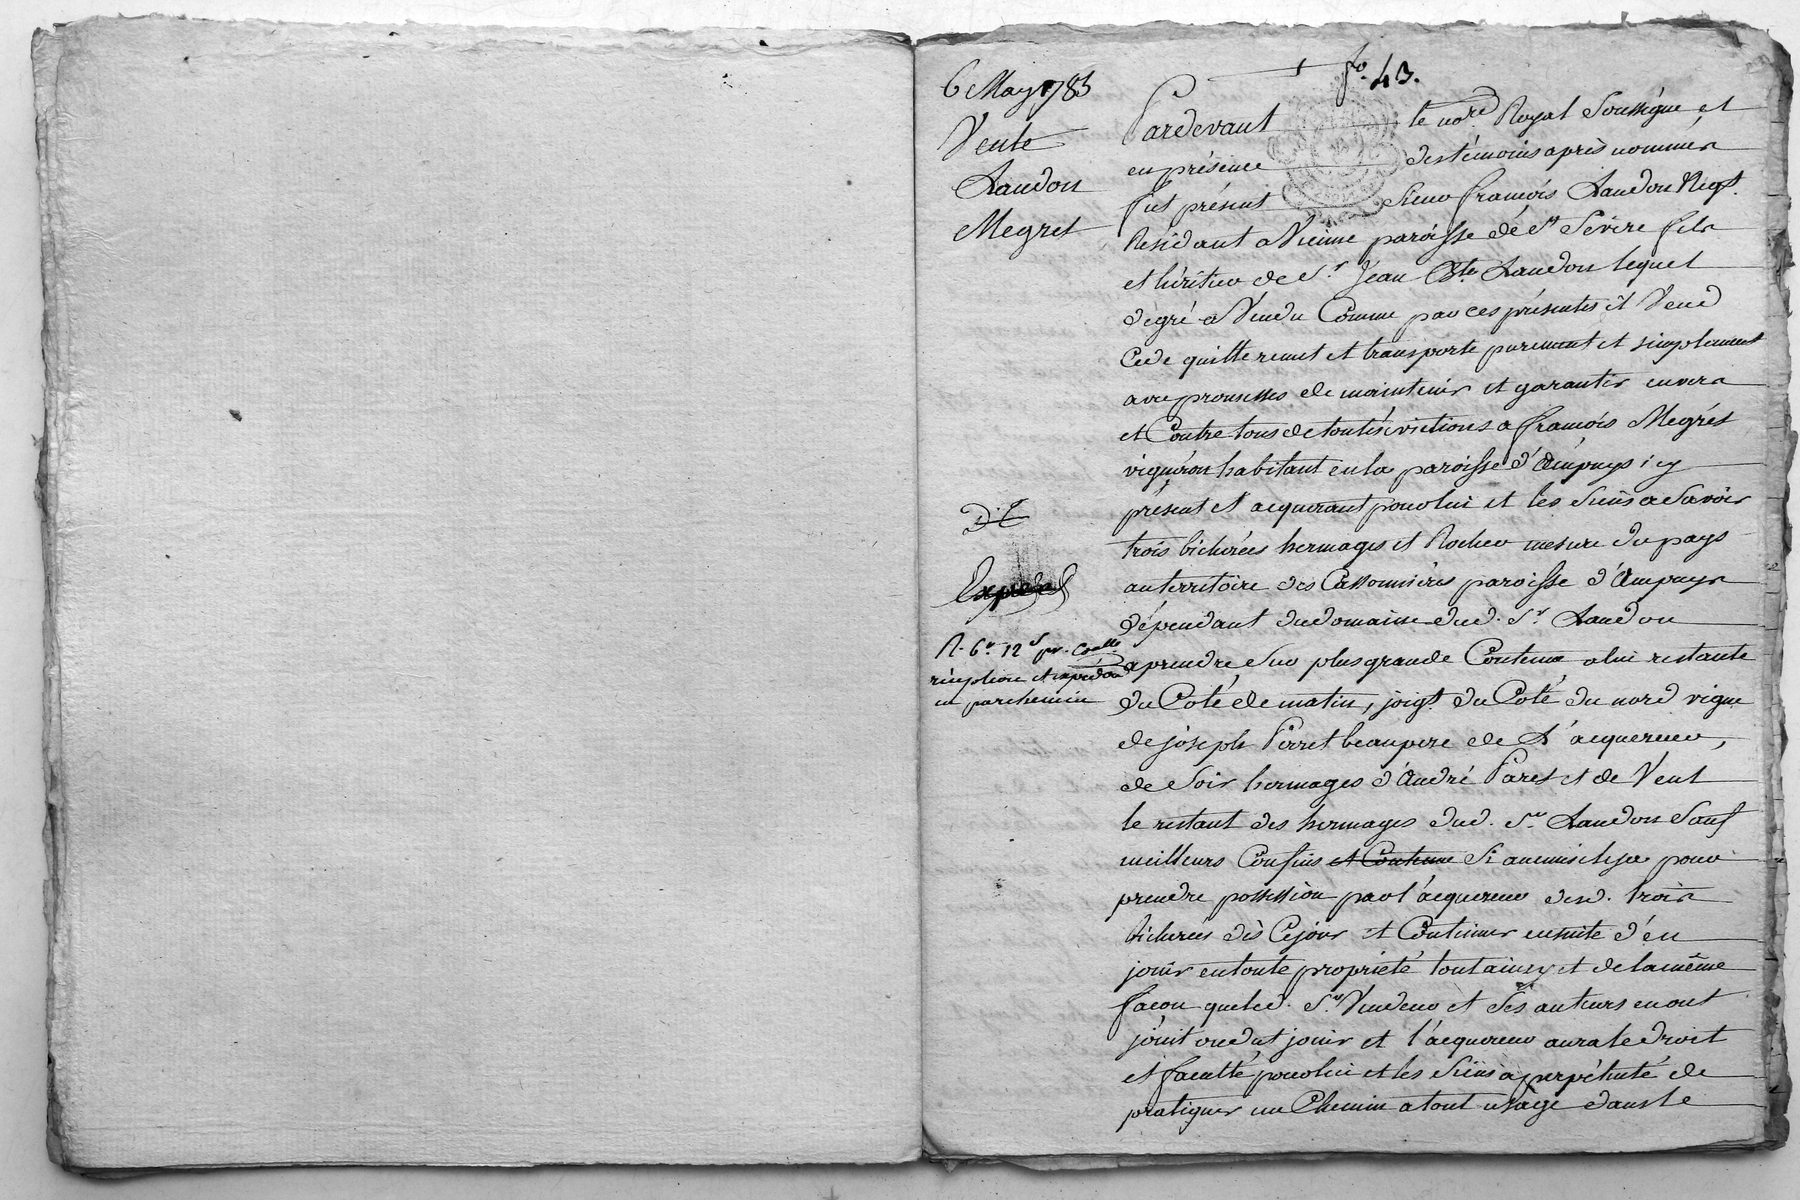 fo. 43.
6 May 1785
Vente
Laudon
Megret
Pardevant le nore Royal Soussigné et
en présence des témoins après nommés
fut présent Sieur françois Laudon Negt.
Residant a Vienne paroisse de St Sévère fils
et héritier de Sr Jean Bte Laudon lequel
de gré a Vendu Comme par ces présentes il Vend
Cede quitte remet et transporte purement et simplement
avec promesses de maintenir et garantir envers
et Contre tous de toutes évictions a françois Megret
vigneron habitant en la paroisse d'Ampuys icy
présent et acquerant pour lui et les Siens a Savoir
trois bicherées hermages et Rocher mesure du pays
au territoire des paroisse d'Ampuys
dépendant du domaine dud. Sr Laudon
a prendre Sur plus grande Contenue a lui restante
du Coté de matin, joigt du Coté du nord vigne
de joseph Perret beaupere de L'acquereur,
de Soir hermages d'André Paret et de Vent
le restant des hermages dud. Sr Laudon Sauf
meilleurs Confins et Contenue Si aucuns il y a pour
prendre possession par l'acquereur desd. trois
bicherées dès Cejour et Continuer ensuite d'en
jouir en toute propriété tout ainsy et de la même
façon que led. Sr Vendeur et Ses auteurs en ont
jouit ou dut jouir et l'acquereur aura le droit
et faculté pour lui et les Siens a perpétuité de
pratiquer un Chemin a tout usage dans le
Expédié
R. 6# 12s pr. Conlle
réception et expédon
en parchemin